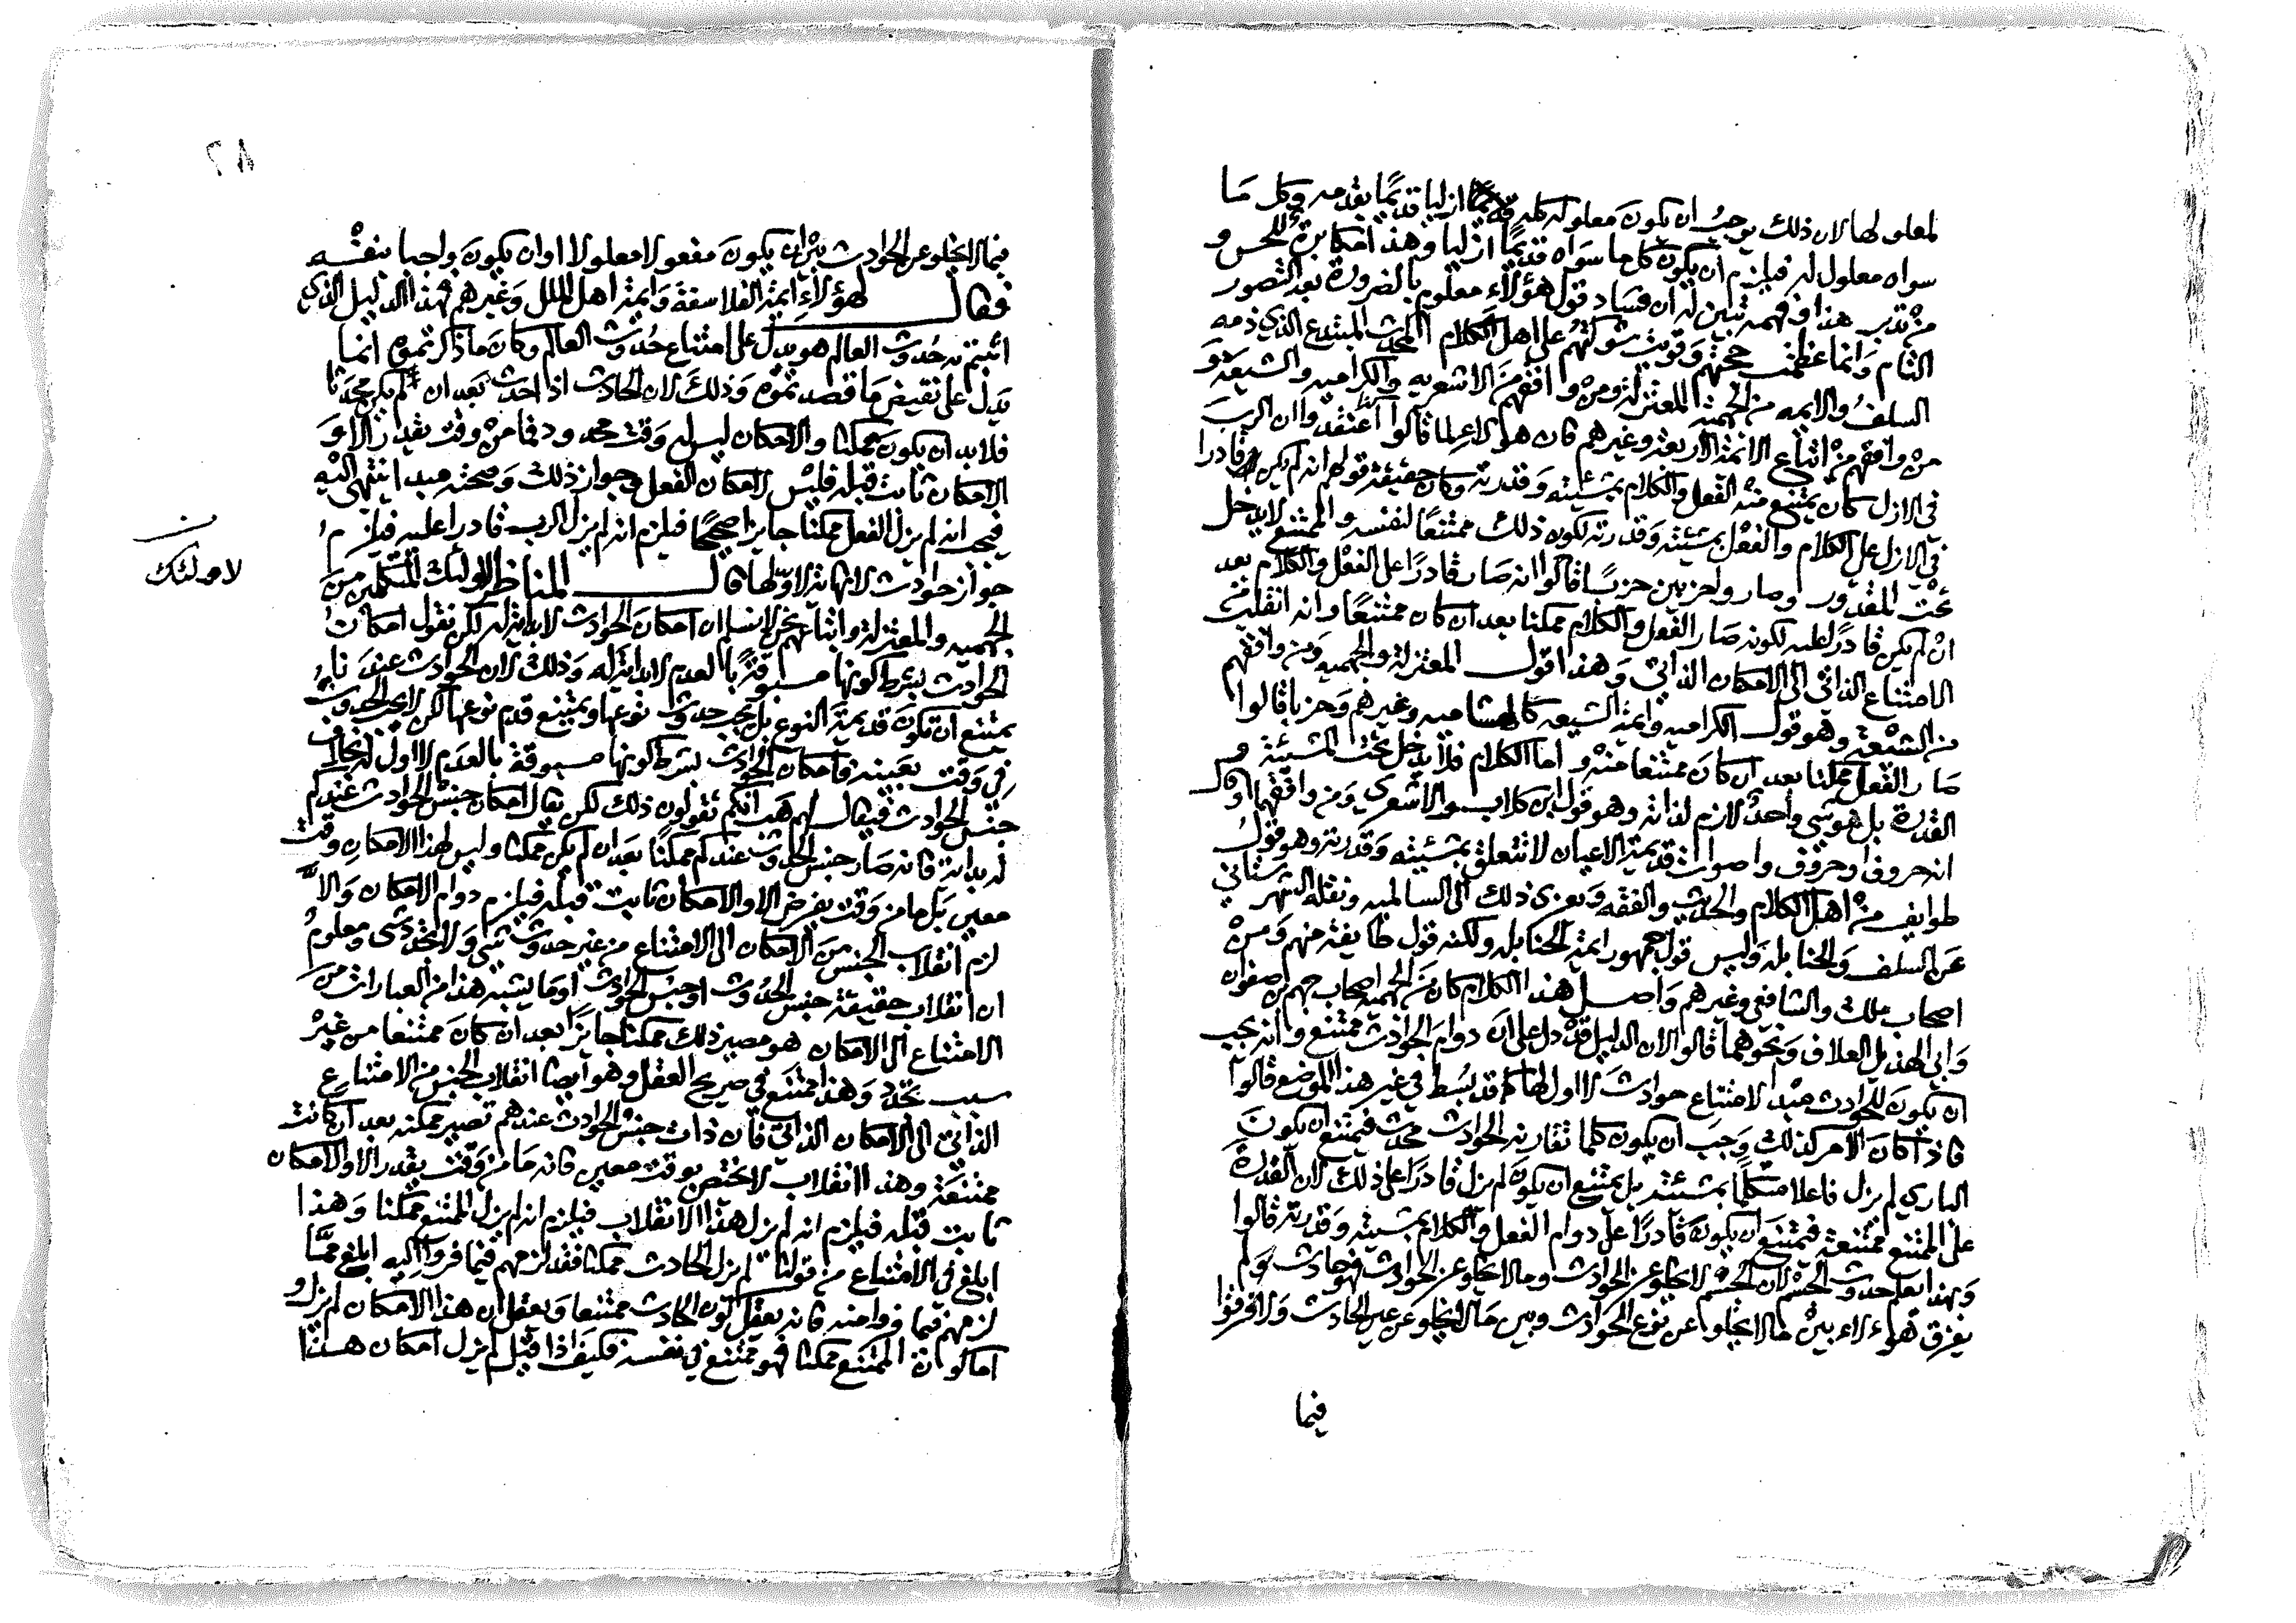 لمعلولها لان ذلك يوجب ان يكون معلوله كله ازليا قديما بقدمه وكل ما
سواه معلول له فيلزم ان يكون كل ما سواه قديما ازليا وهذا مكابرة للحس و
من تدبر هذا وفهمه تبين له ان فساد قول هؤلاء معلوم بالضرورة بعد التصور
التام وانما عظمت حجتهم وقويت شوكتهم على اهل الكلام المحدث المبتدع الذي ذمه
السلف والايمه من الجهمية والمعتزلة ومن وافقهم من الاشعريه والكراميه والشيعة و
من وافقهم من اتباع الائمة الاربعة وغيرهم فان هؤلاء لما قالوا اعتقدوا ان الرب
في الازل كان يمتنع منه الفعل والكلام بمشيئته وقدرته وكان حقيقة قولهم انه لم يكن قادرا
في الازل على الكلام والفعل بمشيئته وقدرته لكون ذلك ممتنعا لنفسه والممتنع لا يدخل
تحت المقدور وصاروا حزبين حزبا قالوا انه صار قادرا على الفعل والكلام بعد
ان لم يكن قادرا عليه لكونه صار الفعل والكلام ممكنا بعد ان كان ممتنعا وانه انقلب من
الامتناع الذاتي الى الامكان الذاتي وهذا قول المعتزلة والجهميه ومن وافقهم
من الشيعة وهو قول الكراميه وايمة الشيعه كالهشاميه وغيرهم وحزبا قالوا
صار الفعل ممكنا بعد ان كان ممتنعا منه واما الكلام فلا يدخل تحت المشيئة و
القدرة بل هو شي واحد لازم لذاته وهو قول ابن كلاب والاشعري ومن وافقهما او قال
انه حروف او حروف واصوات قديمة الاعيان لا تتعلق بمشيئته وقدرته وهو قول
طوايف من اهل الكلام والحديث والفقه ويعزى ذلك الى السالميه ونقله الشهرستاني
عن السلف والحنابله وليس قول جمهور ايمة الحنابله ولكنه قول طايفة منهم ومن
اصحاب ملك والشافعي وغيرهم واصل هذا الكلام كان من الجهميه اصحاب جهم بن صفوان
وابي الهذيل العلاف ونحوهما قالوا لان الدليل قد دل على ان دوام الحوادث ممتنع وانه يجب
ان يكون للحوادث مبدا لامتناع حوادث لا اول لها كما قد بسط في غير هذا الموضع قالوا
فاذا كان الامر كذلك وجب ان يكون كلما تقارنه الحوادث محدث فيمتنع ان يكون
الباري لم يزل فاعلا متكلما بمشيئته بل يمتنع ان يكون لم يزل قادرا على ذلك لان القدرة
على الممتنع ممتنعة فيمتنع ان يكون قادرا على دوام الفعل والكلام بمشيته وقدرته قالوا
وبهذا يعلم حدوث الجسم لان الجسم لا يخلو عن الحوادث وما لا يخلو عن الحوادث فهو حادث ولم
يفرق هؤلاء بين ما لا يخلوا عن نوع الحوادث وبين ما لا يخلو عن عين الحادث ولا فرقوا
فيما
٨٢
فيما لا يخلو عن الحوادث بين ان يكون مفعولا معلولا او ان يكون واجبا بنفسه
فقال لهؤلاء ايمة الفلاسفة وايمة اهل الملل وغيرهم فهذا الدليل الذي
اثبتم به حدوث العالم هو يدل على امتناع حدوث العالم وكان ما ذكرتموه انما
يدل على نقيض ما قصدتموه وذلك لان الحادث اذا حدث بعد ان لم يكن محدثا
فلا بد ان يكون ممكنا والامكان ليس له وقت محدود فما من وقت يقدر الا و
الامكان ثابت قبله فليس لامكان الفعل وجواز ذلك وصحته مبدا ينتهي اليه
فيجب انه لم يزل الفعل ممكنا جايزا صحيحا فيلزم انه لم يزل الرب قادرا عليه فيلزم
جواز حوادث لا نهاية لاولها قال المناظر لاوليك المتكلمين من
لاولئك
الجهميه والمعتزلة واتباعهم نحن لا نسلم ان امكان الحوادث لا بداية له لكن نقول امكان
الحوادث بشرط كونها مسبوقة بالعدم لا بداية له وذلك لان الحوادث عندنا
يمتنع ان تكون قديمة النوع بل يجب حدوث نوعها ويمتنع قدم نوعها لكن لا يجب الحدوث
في وقت بعينه فامكان الحوادث بشرط كونها مسبوقة بالعدم لا اول له بخلاف
جنس الحوادث فيقال لهم هب انكم تقولون ذلك لكن يقال امكان جنس الحوادث عندكم
له بداية فانه صار جنس الحدوث عندكم ممكنا بعد ان لم يكن ممكنا وليس لهذا الامكان وقت
معين بل ما من وقت يفرض الا والامكان ثابت قبله فيلزم دوام الامكان والا
لزم انقلاب الجنس من الامكان الى الامتناع من غير حدوث شي ولا تجدد شي ومعلوم
ان انقلاب حقيقة جنس الحدوث او جنس الحوادث او ما يشبه هذا من العبارات من
الامتناع الى الامكان هو مصير ذلك ممكنا جايزا بعد ان كان ممتنعا من غير
سبب تجدد وهذا ممتنع في صريح العقل وهو ايضا انقلاب الجنس من الامتناع
الذاتي الى الامكان الذاتي فان ذات جنس الحوادث عندهم تصير ممكنه بعد ان كانت
ممتنعة وهذا الانقلاب لا يختص بوقت معين فانه ما من وقت يقدر الا والامكان
ثابت قبله فيلزم انه لم يزل هذا الانقلاب فيلزم انه لم يزل الممتنع ممكنا وهذا
ابلغ في الامتناع من قولنا لم يزل الحادث ممكنا فقد لزمهم فيما فروا اليه ابلغ مما
لزمهم فيما فروا منه فانه يعقل كون الحادث ممتنعا ويعقل ان هذا الامكان لم يزل و
اما كون الممتنع ممكنا فهو ممتنع في نفسه فكيف اذا قيل لم يزل امكان هذا